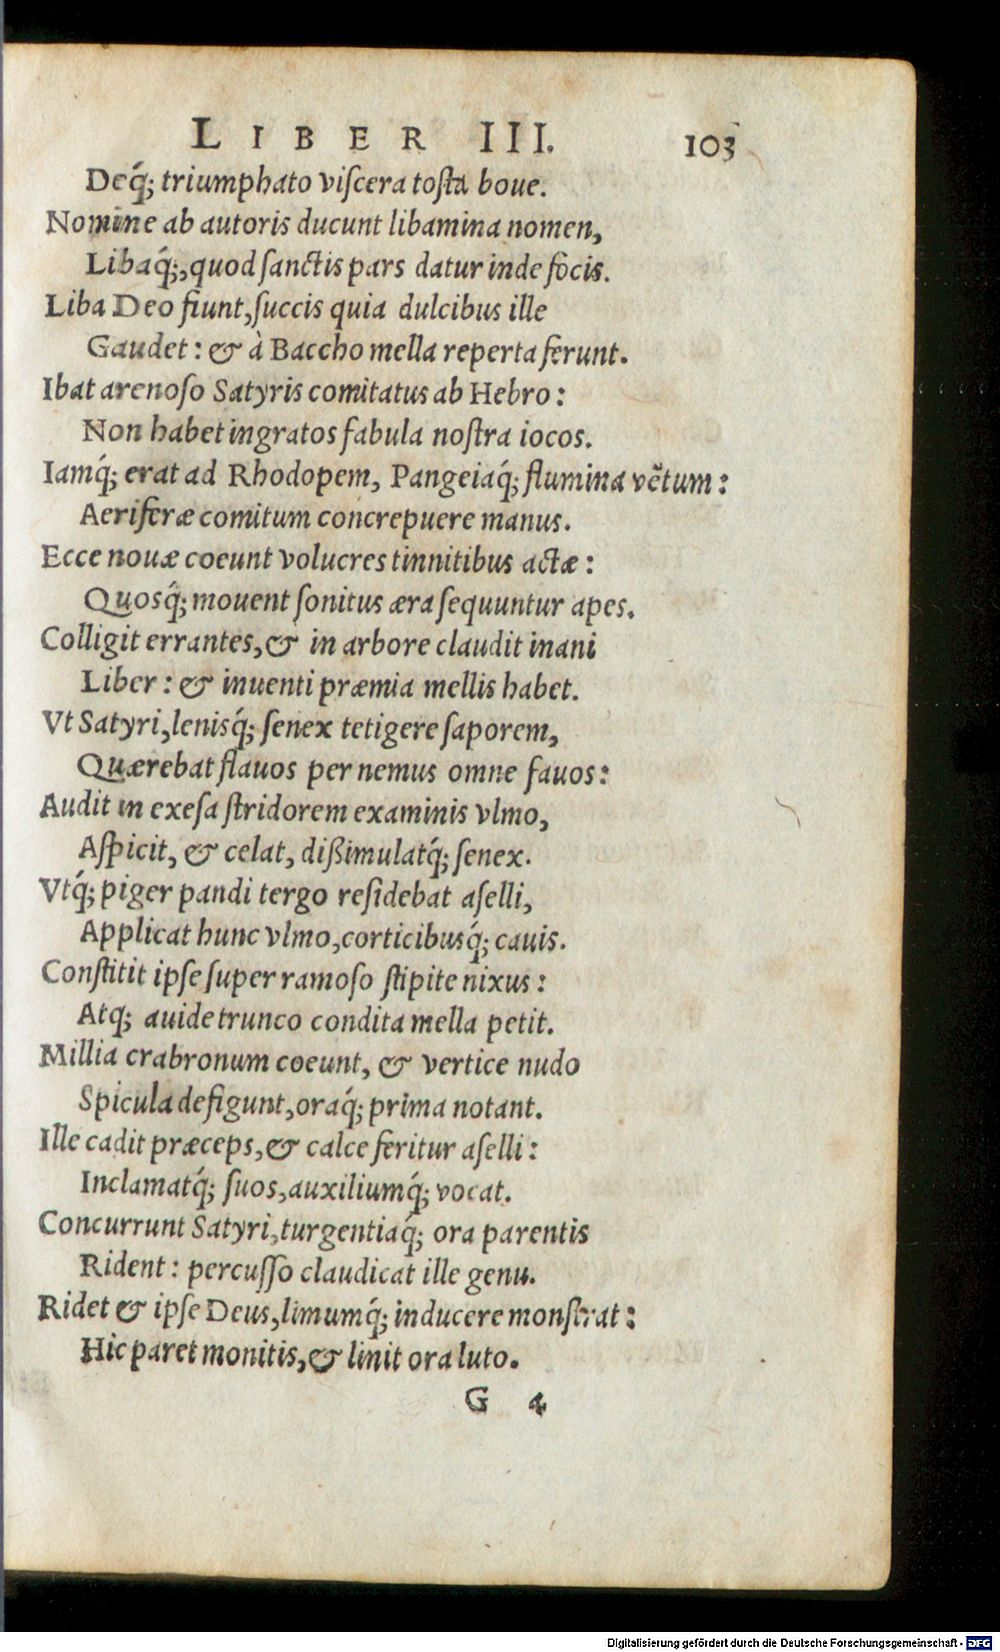 LIBER III. 103
Deq́; triumphato viſcera toſta boue.
Nomine ab autoris ducunt libamina nomen,
Libaq́;, quod ſanctis pars datur inde focis.
Liba Deo fiunt, ſuccis quia dulcibus ille
Gaudet: & à Baccho mella reperta ferunt.
Ibat arenoſo Satyris comitatus ab Hebro:
Non habet ingratos fabula noſtra iocos.
Iamq́; erat ad Rhodopem, Pangeiaq́; flumina vẽtum:
Aeriferæ comitum concrepuere manus.
Ecce nouæ coeunt volucres tinnitibus actæ:
Quosq́; mouent ſonitus æra ſequuntur apes.
Colligit errantes, & in arbore claudit inani
Liber: & inuenti præmia mellis habet.
Vt Satyri, lenisq́; ſenex tetigere ſaporem,
Quærebat flauos per nemus omne fauos:
Audit in exeſa ſtridorem examinis vlmo,
Aſpicit, & celat, dißimulatq́; ſenex.
Vtq́; piger pandi tergo reſidebat aſelli,
Applicat hunc vlmo, corticibusq́; cauis.
Conſtitit ipſe ſuper ramoſo ſtipite nixus:
Atq; auide trunco condita mella petit.
Millia crabronum coeunt, & vertice nudo
Spicula defigunt, oraq́; prima notant.
Ille cadit præceps, & calce feritur aſelli:
Inclamatq́; ſuos, auxiliumq́; vocat.
Concurrunt Satyri, turgentiaq́; ora parentis
Rident: percuſſo claudicat ille genu.
Ridet & ipſe Deus, limumq́; inducere monſtrat:
Hic paret monitis, & linit ora luto.
G 4
Digitalisierung gefördert durch die Deutsche Forschungsgemeinschaft - DFG